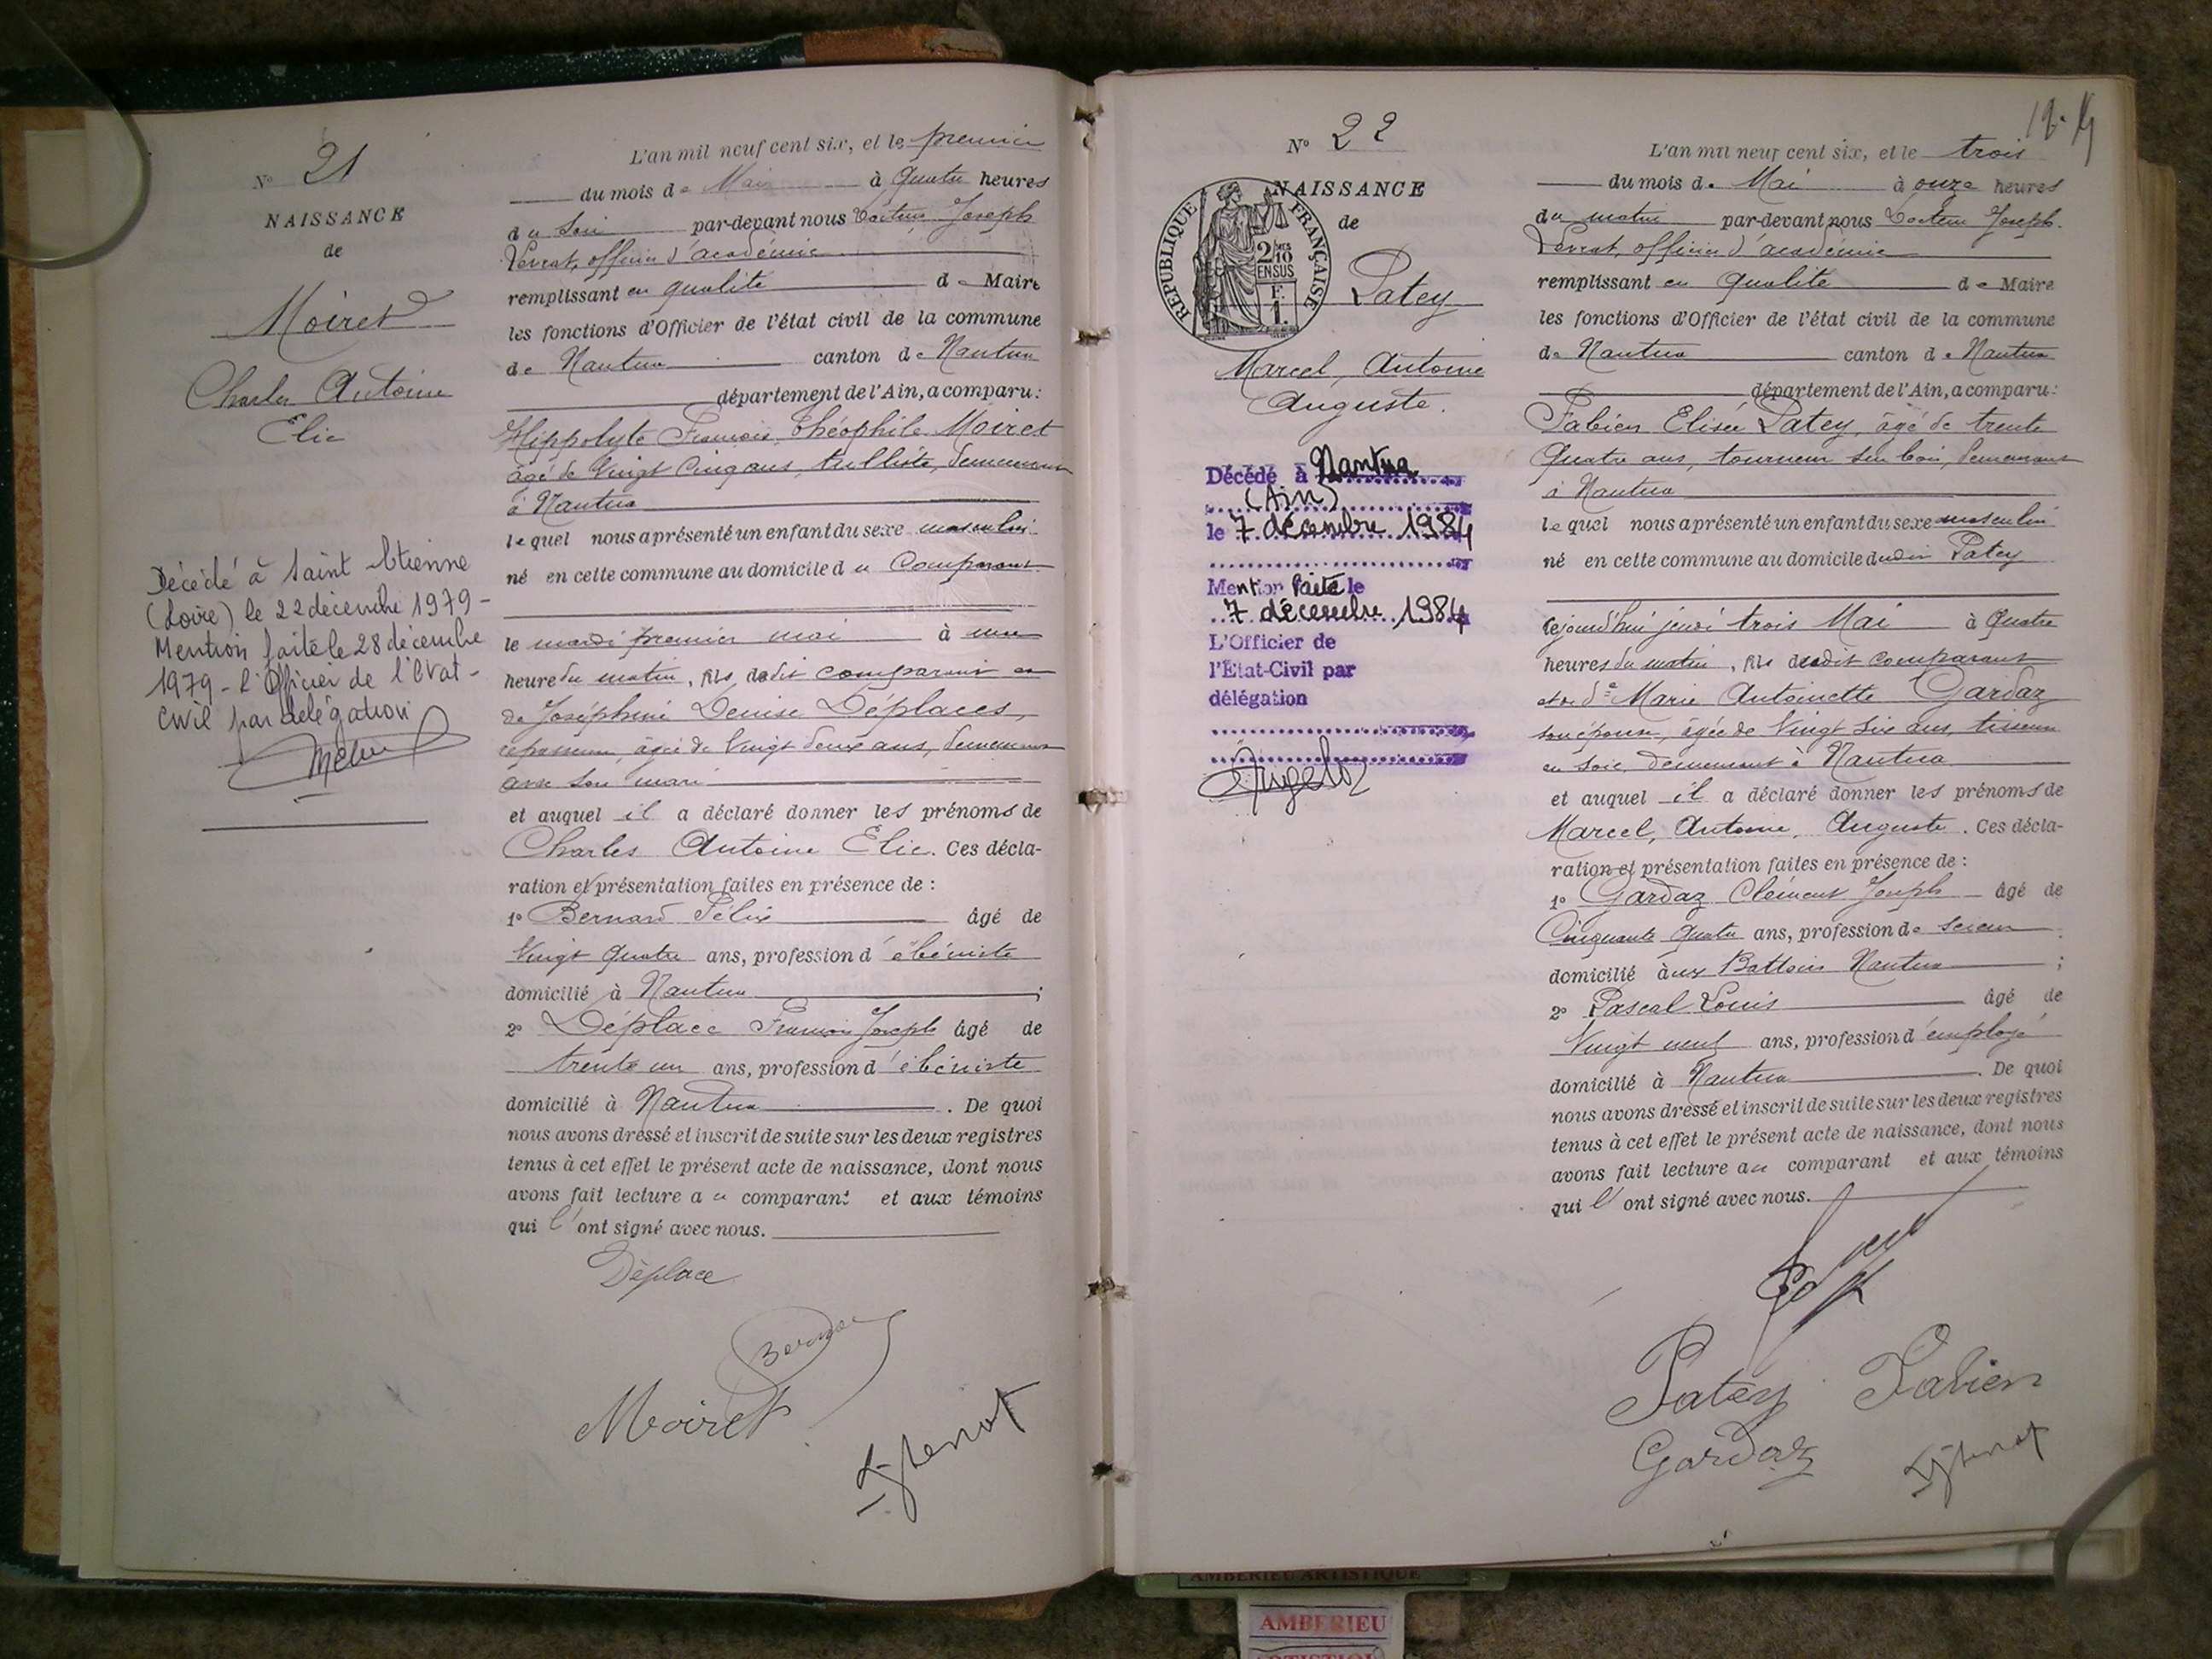 N° 21
NAISSANCE
de
Moiret
Charles Antoine
Elie
Décédé à Saint Etienne
(Loire) le 22 décembre 1979 -
Mention faite le 28 décembre
1979 - L'Officier de l'Etat -
Civil par délégation
L'an mil neuf cent six, et le premier
du mois de Mai à Quatre heures
du Soir par-devant nous Docteur Joseph
officier d'académie
remplissant en qualité de Maire
les fonctions d'Officier de l'état civil de la commune
de Nantua canton de Nantua
département de l'Ain, a comparu :
Hippolyte François Théophile Moiret
âgé de Vingt Cinq ans, tulliste, demeurant
à Nantua
lequel nous a présenté un enfant du sexe masculin
né en cette commune au domicile du Comparant
le mardi premier mai à une
heure du matin, fils dudit comparant et
de Joséphine Denise Déplaces,
repasseuse, âgée de Vingt deux ans, demeurant
avec son mari
et auquel il a déclaré donner les prénoms de
Charles Antoine Elie. Ces décla-
ration et présentation faites en présence de :
1° Bernard Félix âgé de
Vingt Quatre ans, profession d'ébéniste
domicilié à Nantua ;
2° Déplace François Joseph âgé de
trente un ans, profession d'ébéniste
domicilié à Nantua. De quoi
nous avons dressé et inscrit de suite sur les deux registres
tenus à cet effet le présent acte de naissance, dont nous
avons fait lecture au comparant et aux témoins
qui l'ont signé avec nous.
Déplace
Bernard
Moiret
N° 22
NAISSANCE
de
RÉPUBLIQUE FRANÇAISE
2/10
EN SUS
F.
1.
Patey
Marcel, Antoine
Auguste.
Décédé à Nantua
(Ain)
le 7 décembre 1984
Mention faite le
7 décembre 1984
L'Officier de
l'État-Civil par
délégation
L'an mil neuf cent six, et le trois
du mois de Mai à onze heures
du matin par-devant nous Docteur Joseph
officier d'académie
remplissant en Qualité de Maire
les fonctions d'Officier de l'état civil de la commune
de Nantua canton de Nantua
département de l'Ain, a comparu :
Fabien Elisée Patey, âgé de trente
Quatre ans, tourneur sur bois, demeurant
à Nantua
lequel nous a présenté un enfant du sexe masculin
né en cette commune au domicile dudit Patey
cejourd'hui jeudi trois Mai à Quatre
heures du matin, fils dudit comparant
et de De Marie Antoinette Gardaz
son épouse, âgée de Vingt Six ans, tisseuse
en soie, demeurant à Nantua
et auquel il a déclaré donner les prénoms de
Marcel, Antoine, Auguste. Ces décla-
ration et présentation faites en présence de :
1° Gardaz Clément Joseph âgé de
Cinquante Quatre ans, profession de scieur
domicilié aux Battoirs Nantua ;
2° Pascal Louis âgé de
Vingt neuf ans, profession d'employé
domicilié à Nantua. De quoi
nous avons dressé et inscrit de suite sur les deux registres
tenus à cet effet le présent acte de naissance, dont nous
avons fait lecture au comparant et aux témoins
qui l'ont signé avec nous.
Patey Fabien
Gardaz
AMBERIEU ARTISTIQUE
AMBERIEU